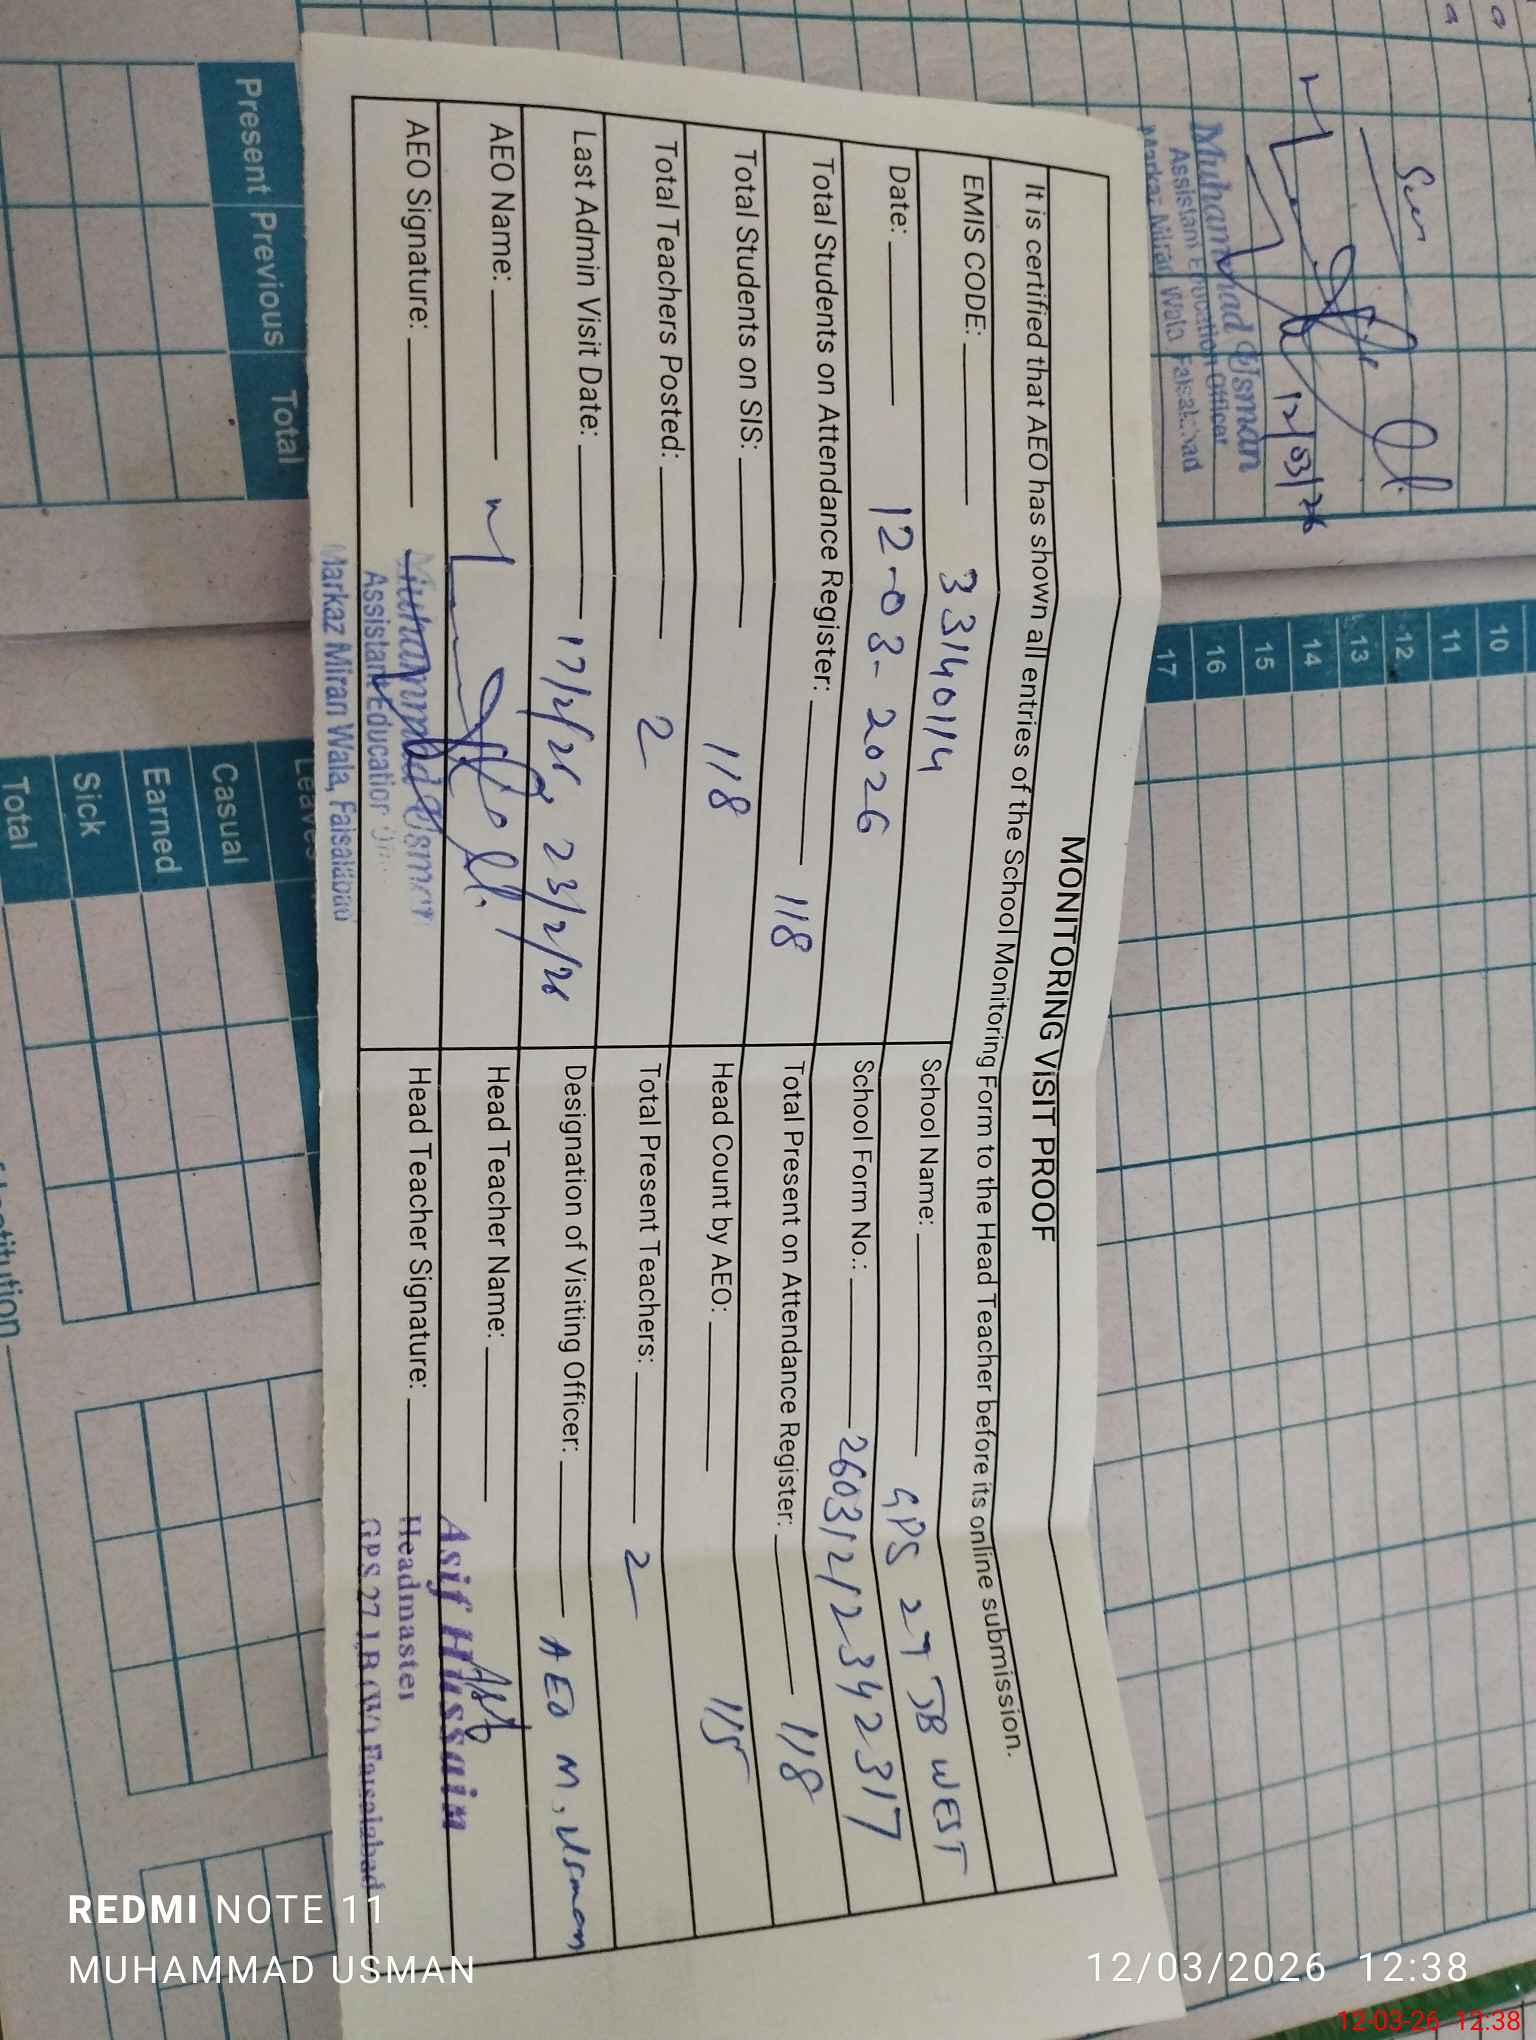 MONITORING VISIT PROOF
It is certified that AEO has shown all entries of the School Monitoring Form to the Head Teacher before its online submission.
EMIS CODE: 33140114
School Name: GPS 27 JB WEST
Date: 12-03-2026
School Form No.: 26031212342317
Total Students on Attendance Register: 118
Total Present on Attendance Register: 118
Total Students on SIS: 118
Head Count by AEO: 115
Total Teachers Posted: 2
Total Present Teachers: 2
Last Admin Visit Date: 17/2/26, 23/2/26
Designation of Visiting Officer: AEO M, Usman
AEO Name:
Head Teacher Name:
AEO Signature:
Head Teacher Signature:
Muhammad Usman
Assistant Education
Markaz Miran Wala, Faisalabad
Asif Hussain
Headmaster
GPS 27 J.B (W) Faisalabad
12/03/26
Muhammad Usman
Assistant Education Officer
Markaz Miran Wala, Faisalabad
10
11
12
13
14
15
16
17
Present
Previous
Total
Leaves
Casual
Earned
Sick
Total
REDMI NOTE 11
MUHAMMAD USMAN
12/03/2026 12:38
12-03-26 12:38